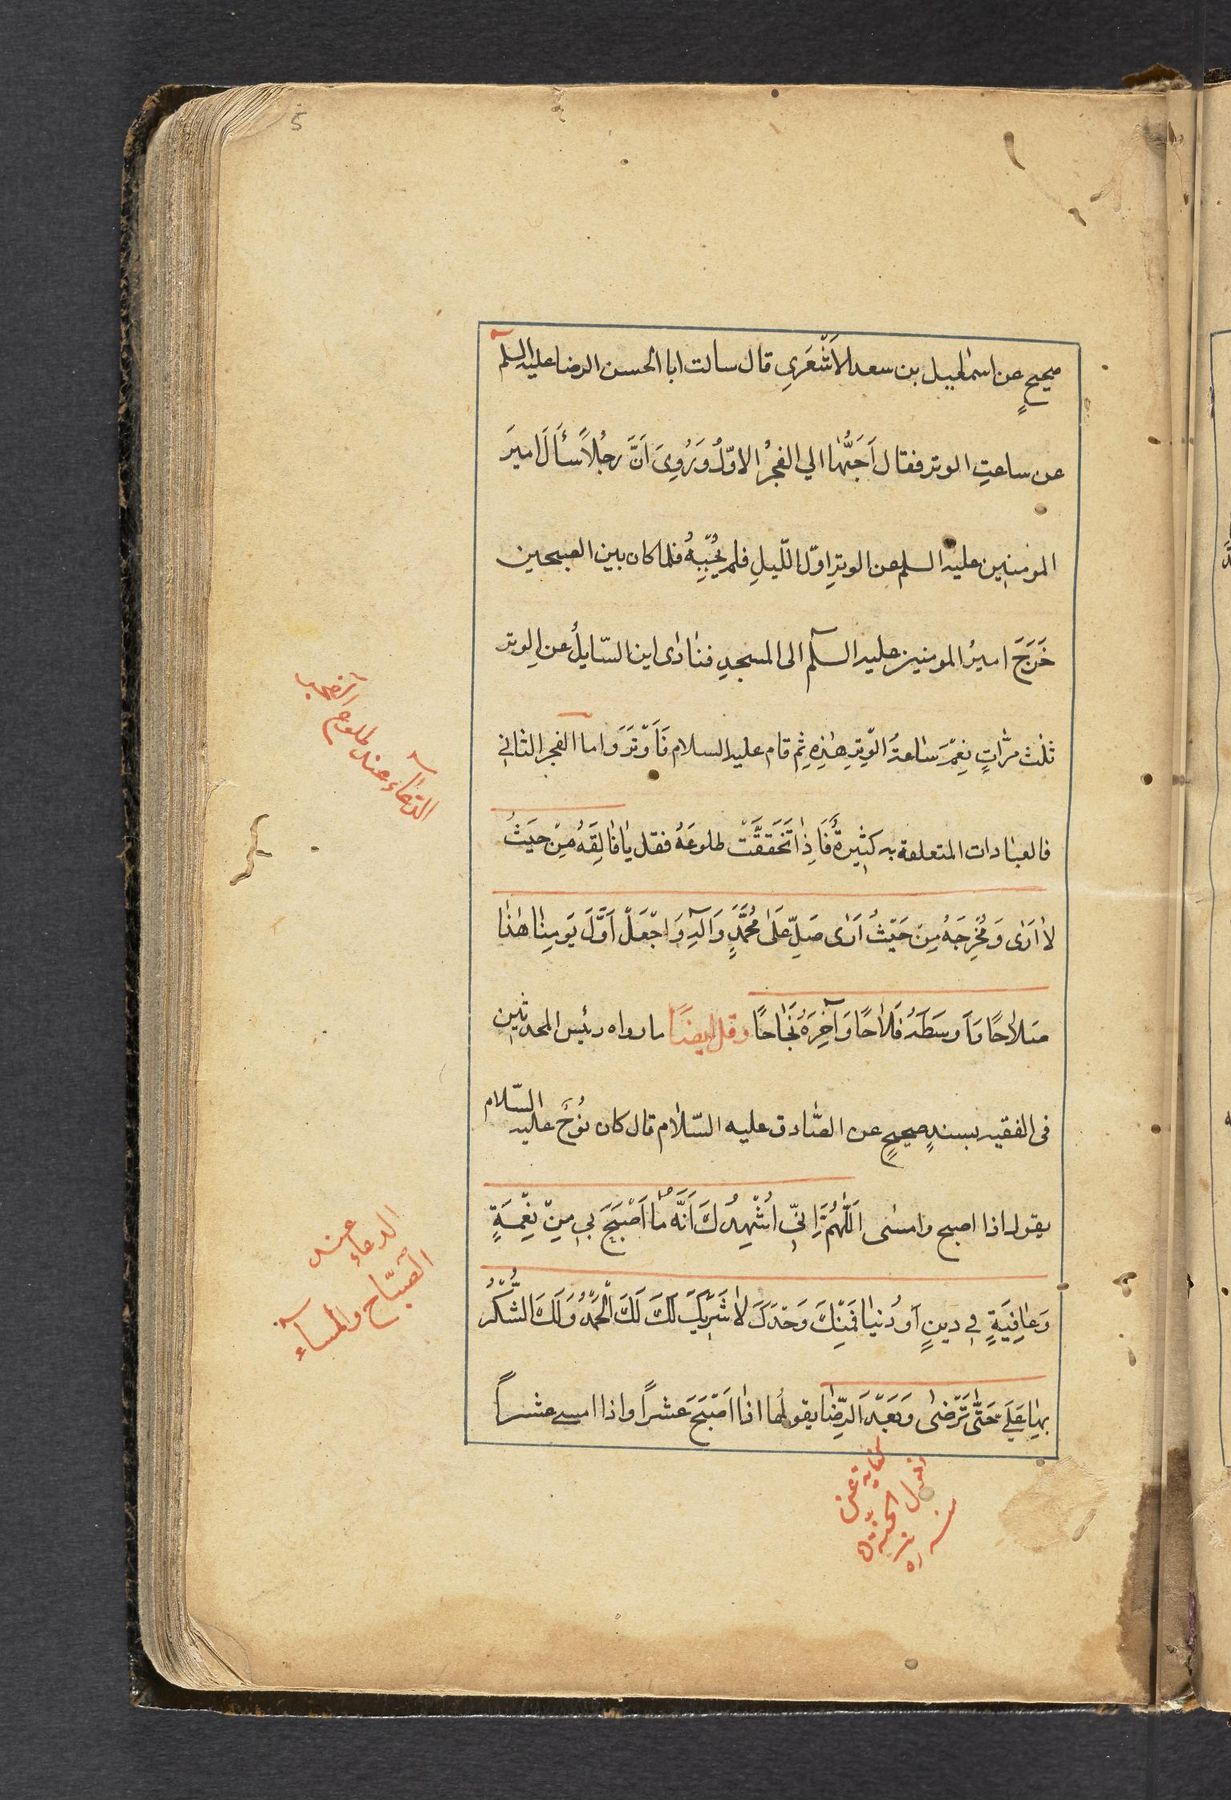 5
صحيحٍ عن اسمٰعيل بن سعد الاَشْعَرِي قال سالت ابا الحسن الرضا عليه السلم
عن ساعتِ الوتر فقال اَحَبُّهٰا الي الفجرُ الاوّلُ وَرُوِىَ اَنَّ رجُلاً سَأَلَ اميرَ
المومنين عليه السلم عن الوترِ اوّل اللّيلِ فلم يُجِبْهُ فلما كان بين الصبحين
خَرَجَ اميرُ المومنين عليه السلم الى المسجدِ فنٰادٰى اين السّايلُ عن الوتر
ثلٰث مرّٰاتٍ نِعْمَ سٰاعةُ الوِترِ هٰذِهِ ثم قام عليه السلام فَاَوْتَرَ واما الفجر الثاني
فالعبٰادات المتعلقة به كثيرةٌ فَاِذٰا تَحَقَّقَتْ طلوعَهُ فقل يٰا فٰالِقَهُ مِنْ حَيْثُ
لاٰ اَرٰى وَ مُخْرِجَهُ مِنْ حَيْثُ اَرٰى صَلِّ عَلٰى مُحَمَّدٍ وَآلِهِ وَاجْعَلْ اَوَّلَ يَومِنٰا هٰذٰا
صَلاٰحًا وَاَوسَطَهُ فَلاٰحًا وَآخِرَهُ نَجٰاحًا وقل ايضًا ما رواه رئيس المحدثين
فى الفقيه بسندٍ صحيحٍ عن الصّٰادق عليه السّلاٰم قال كان نُوحٌ عليه السّلام
يقول اذا اصبح وامسٰى اَللّٰهُمَّ اِنّي اُشْهِدُكَ اَنَّهُ مٰا اَصْبَحَ بي مِنْ نِعْمَةٍ
وَعٰافِيَةٍ في دينٍ اَو دُنيٰا فَمِنْكَ وَحْدَكَ لاٰ شَريكَ لَكَ لَكَ الْحَمْدُ وَلَكَ الشُّكْرُ
بِهٰا عَلَيَّ حَتّٰى تَرْضٰى وَبَعْدَ الرِّضٰا يقولُهٰا اذٰا اَصْبَحَ عَشراً واذا امسى عشراً
الدّعاء عند طلوع
الدعاء عند
الصّبٰاح والمسٰاء